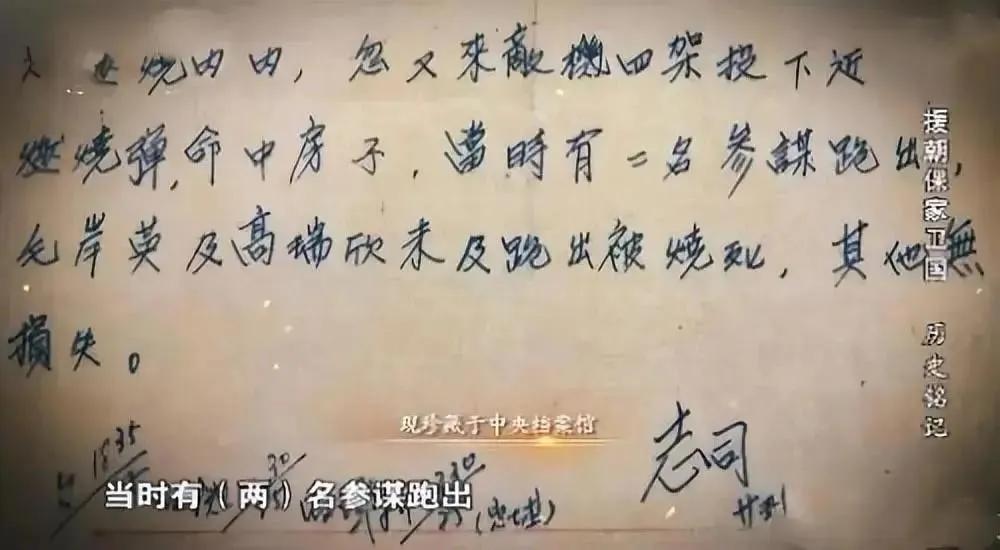 內，忽又來敵機四架投下近
燃燒弹，命中房子，當時有二名參謀跑出，
毛岸英及高瑞欣未及跑出被燒死，其他無
損失。
志司
现珍藏于中央档案馆
当时有（两）名参谋跑出
援朝保家卫国 历史铭记